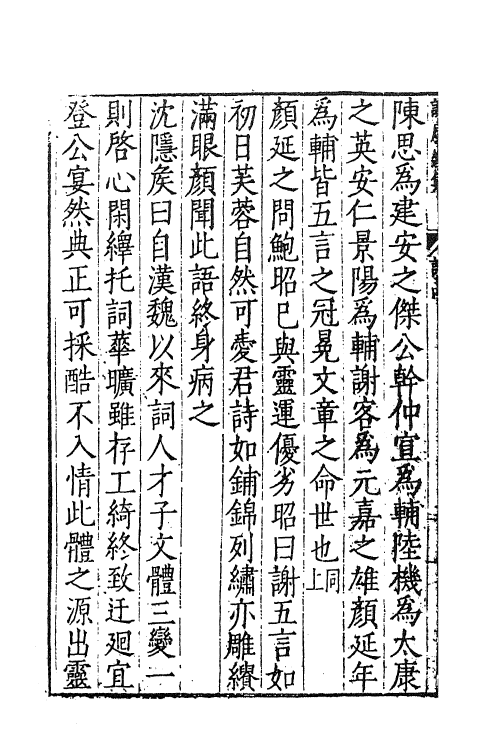 陳思為建安之傑公幹仲宣為輔陸機為太康
之英安仁景陽為輔謝客為元嘉之雄顏延年
為輔皆五言之冠冕文章之命世也同上
顏延之問鮑昭已與靈運優劣昭曰謝五言如
初日芙蓉自然可愛君詩如鋪錦列繡亦雕繢
滿眼顏聞此語終身病之
沈隱矦曰自漢魏以來詞人才子文體三變一
則啓心閑繹托詞華曠雖存工綺終致迂迴宜
登公宴然典正可採酷不入情此體之源出靈